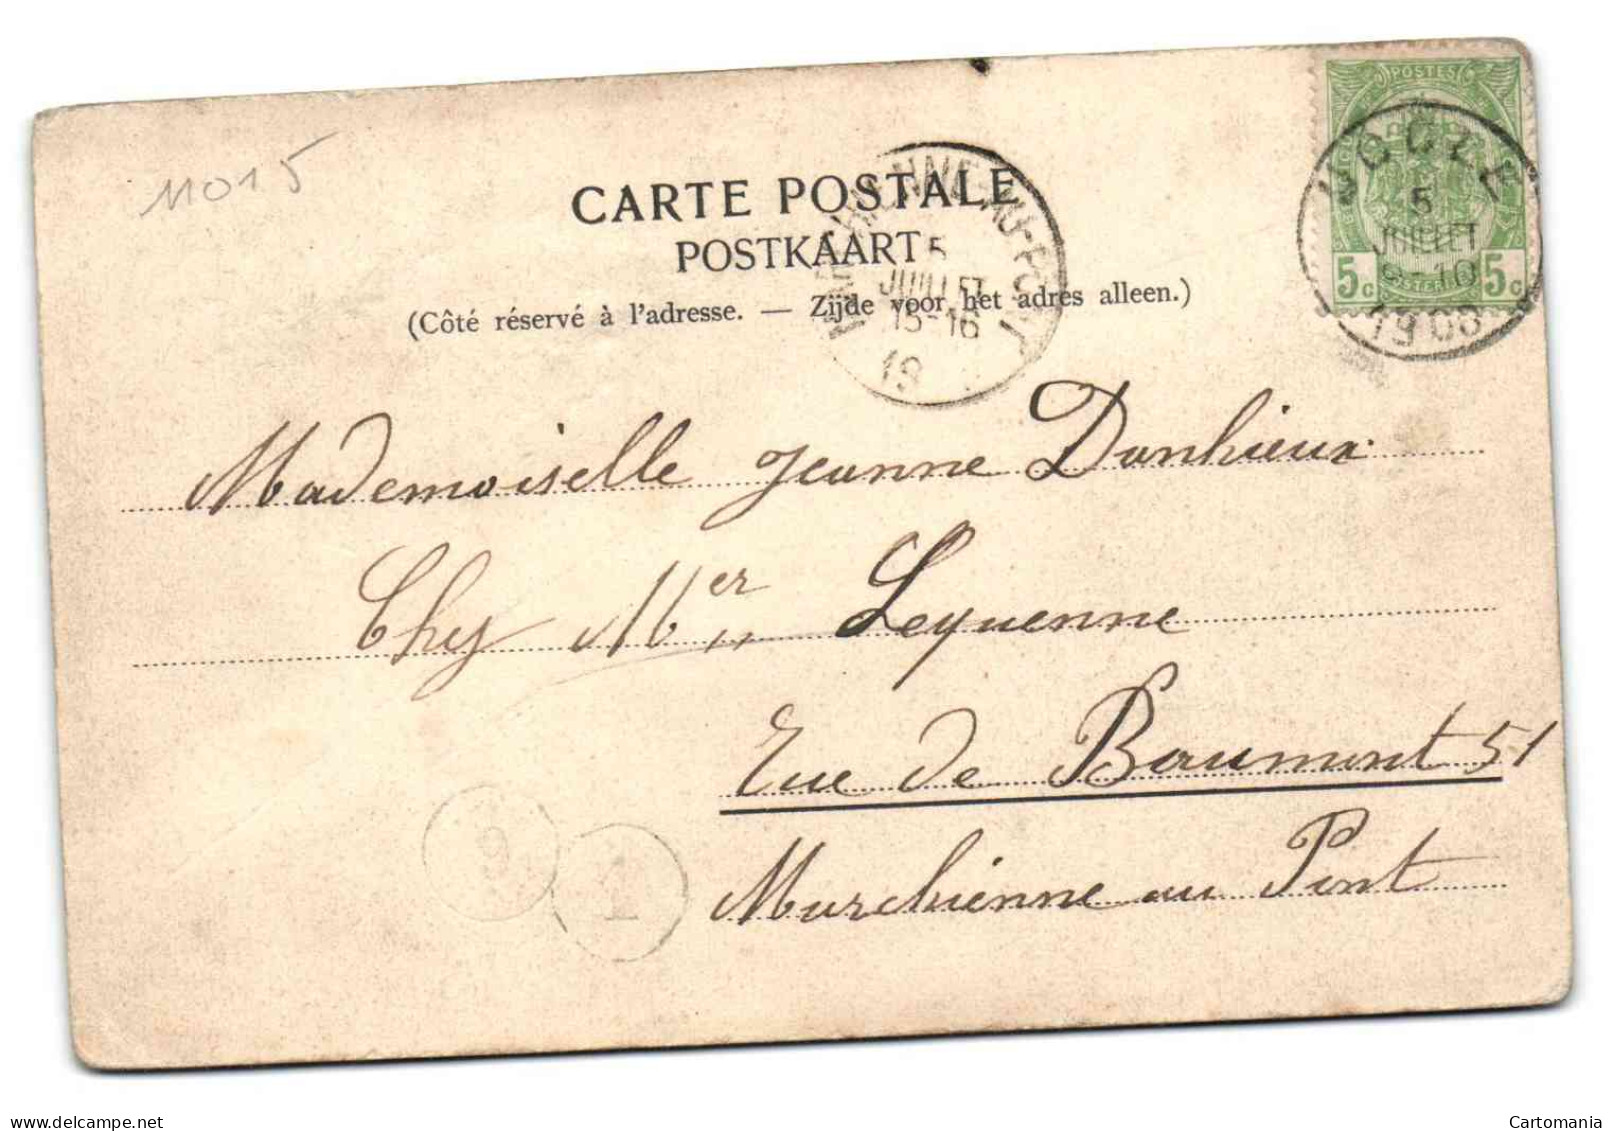 11015
CARTE POSTALE
POSTKAART
(Côté réservé à l'adresse. — Zijde voor het adres alleen.)
MARCHIENNE-AU-PONT
5
JUILLET
15-16
19
POSTES
5c 5c
UCCLE
5
JUILLET
9-10
1903
Mademoiselle Jeanne Danhieux
Chez Mer Lequenne
Rue de Beaumont 51
Marchienne au Pont
9
1
Cartomania